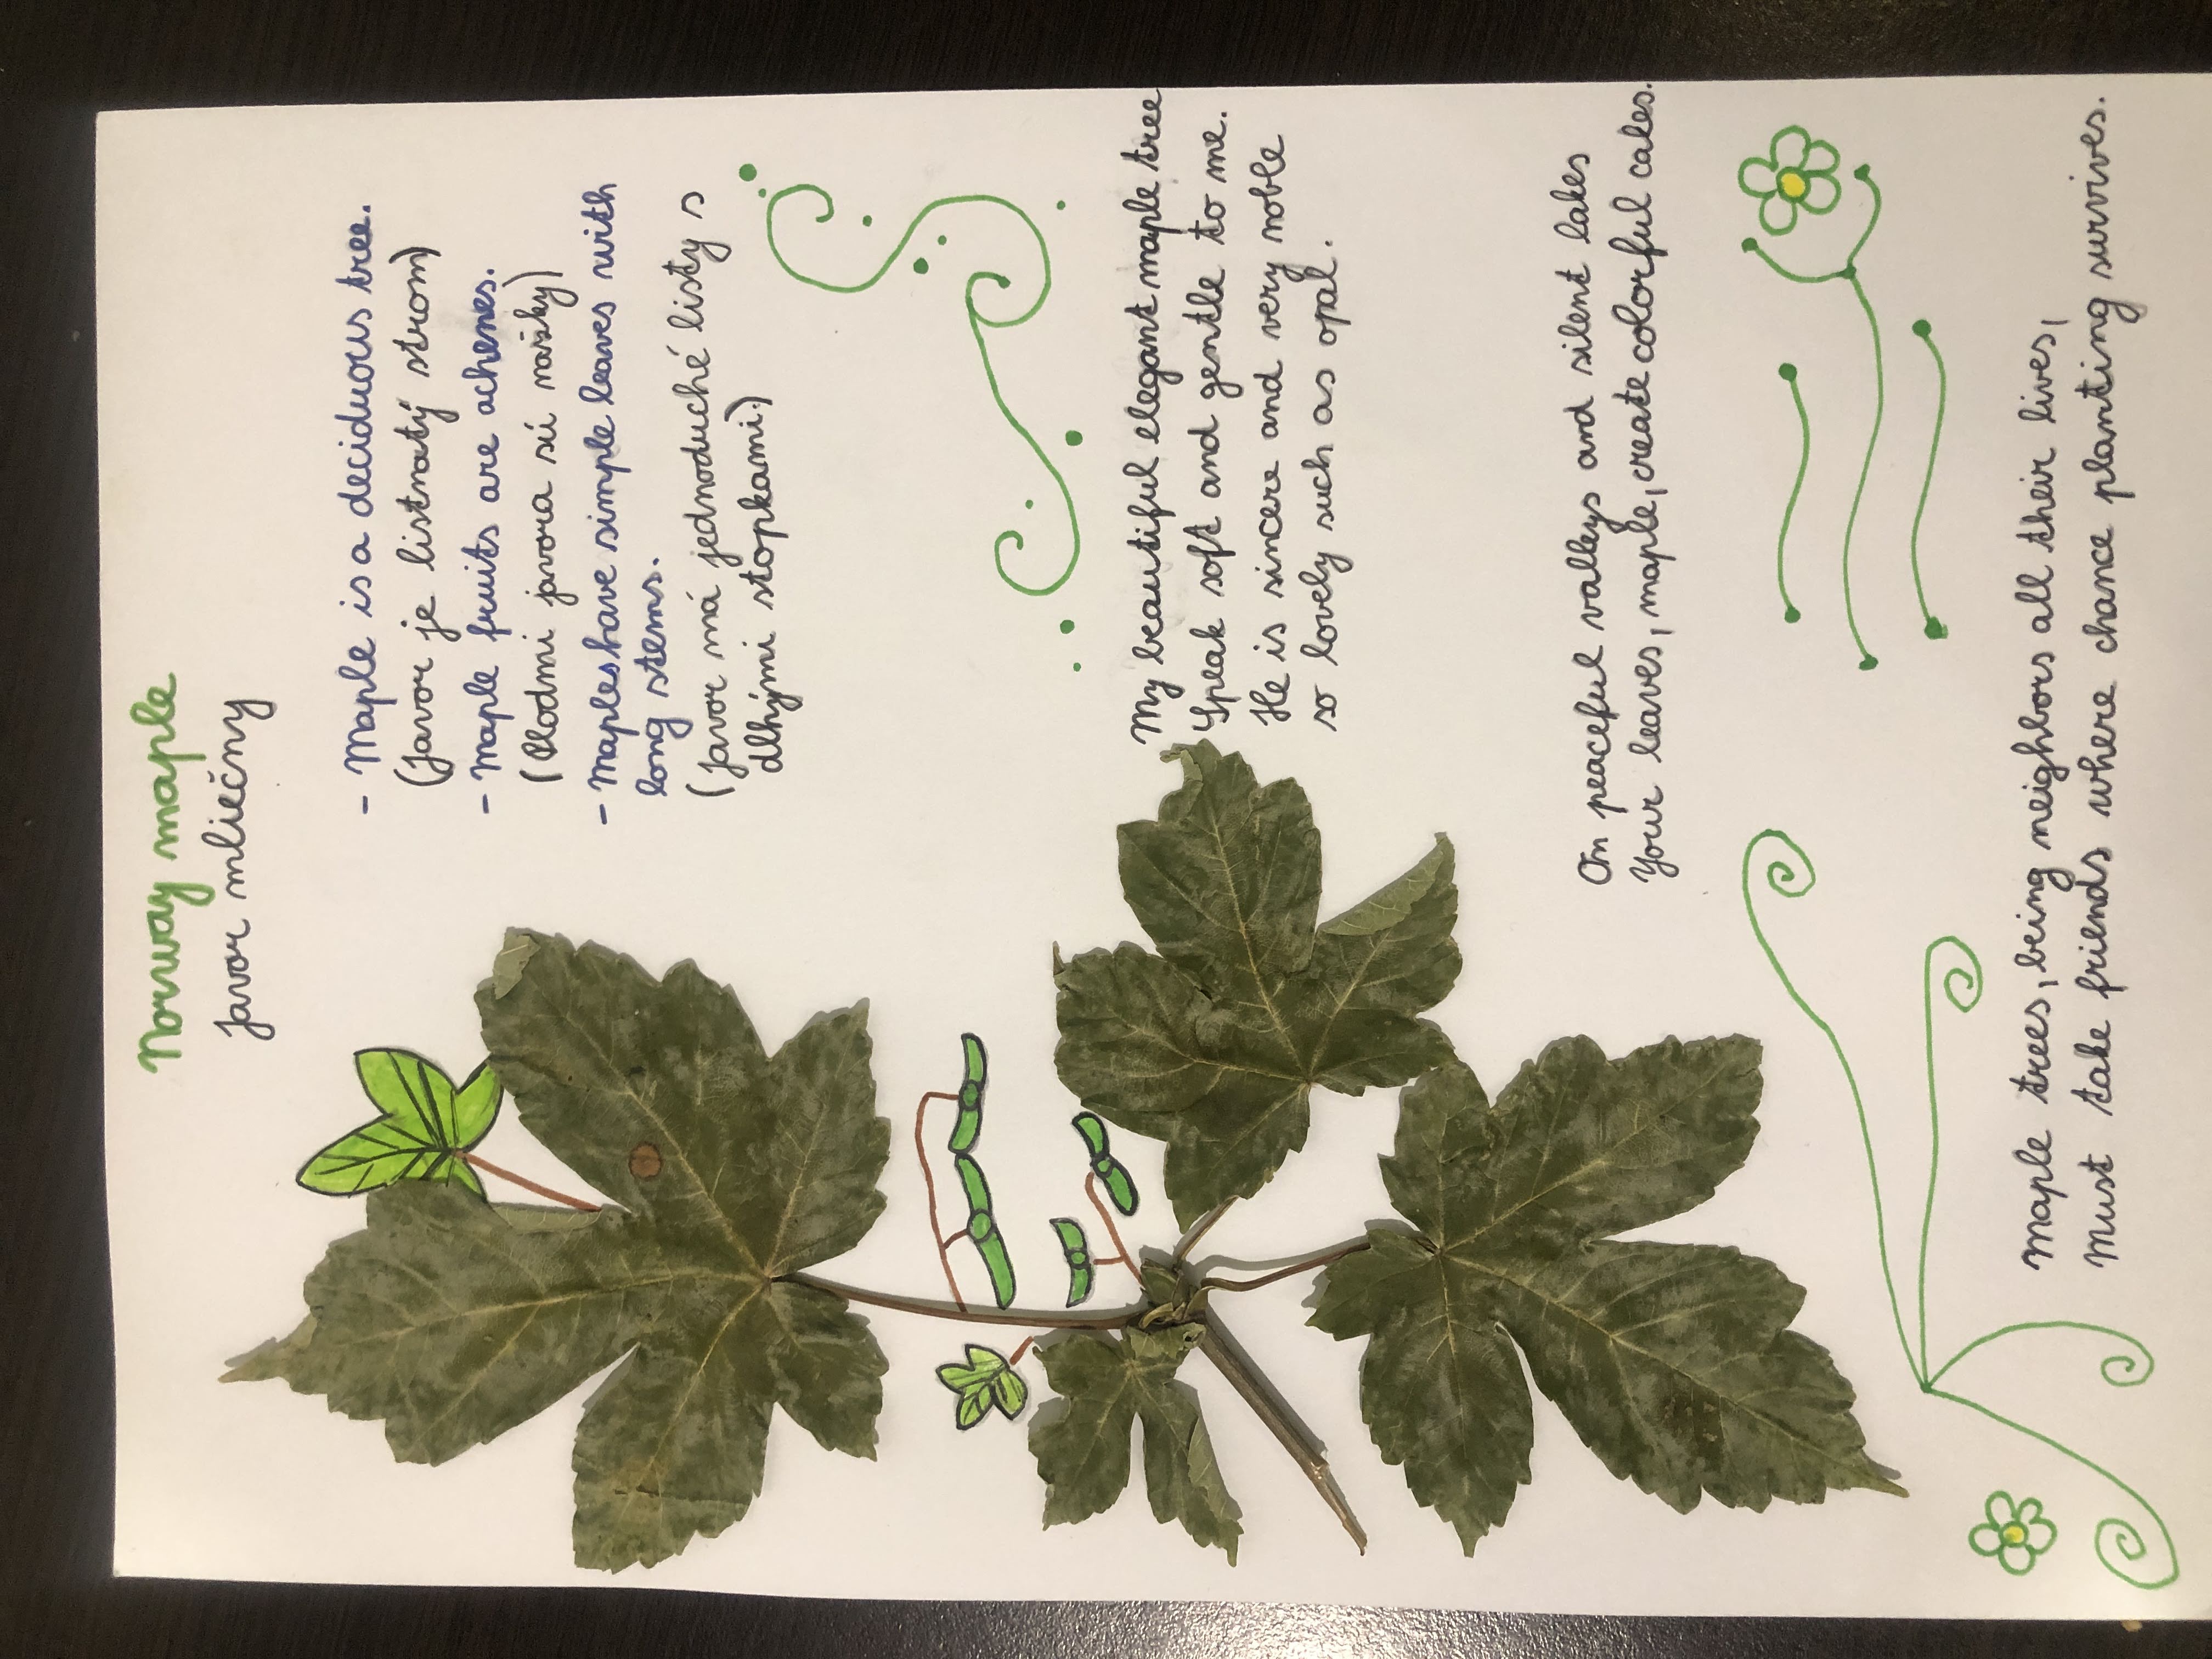 Norway maple
Javor mliečny
- Maple is a deciduous tree.
(Javor je listnatý strom)
- Maple fruits are achenes.
(Plodmi javora sú nažky)
- Maples have simple leaves with
long stems.
(Javor má jednoduché listy s
dlhými stopkami.)
My beautiful elegant maple tree
Speak soft and gentle to me.
He is sincere and very noble
so lovely such as opal.
On peaceful valleys and silent lakes
Your leaves, maple, create colorful cales.
Maple trees, being neighbors all their lives,
Must take friends where chance planting survives.